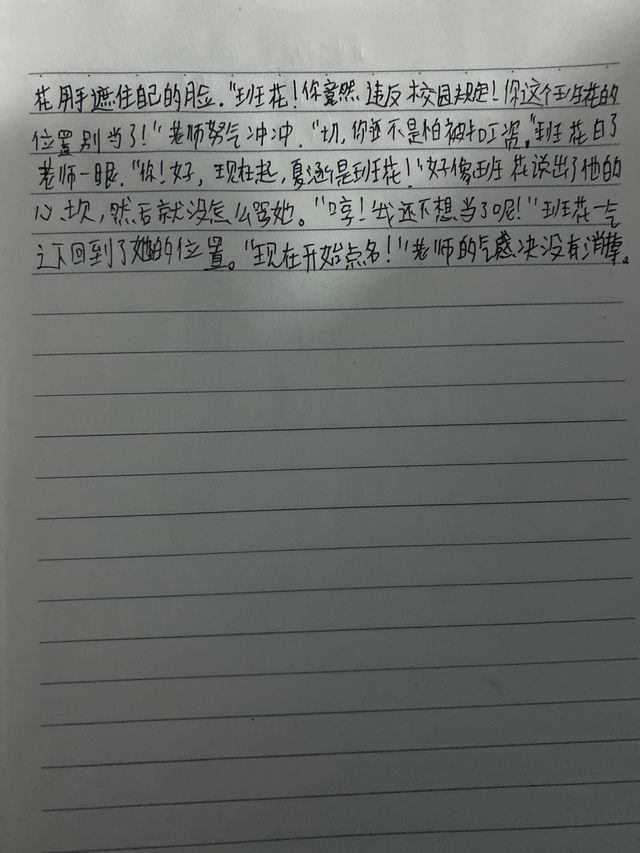 花用手遮住自己的脸."班花!你竟然违反校园规定!你这个班花的
位置别当了!"老师努气冲冲."切,你还不是怕被扣工资."班花白了
老师一眼."你!好,现在起,夏涵是班花!"好像班花说出了他的
心坎,然后就没怎么骂她。"哼!我还不想当了呢!"班花一气
之下回到了她的位置。"现在开始点名!"老师的气感决没有消掉。